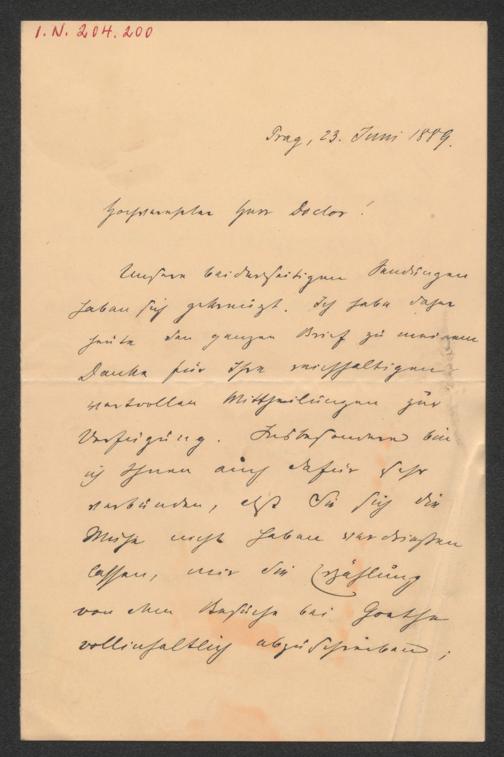 I.N. 204.200
Prag, 23. Juni 1889.
Hochverehrter Herr Doctor!
Unsere beiderseitigen Sendungen
haben sich gekreuzt. Ich habe daher
heute den ganzen Brief zu meinem
Danke für Ihre reichhaltigen
wertvollen Mittheilungen zur
Verfügung. Insbesondere bin
ich Ihnen auch dafür sehr
verbunden, daß Sie sich die
Mühe nicht haben verdrießen
lassen, mir die Erzählung
von dem Besuche bei Goethe
vollinhaltlich abzuschreiben;